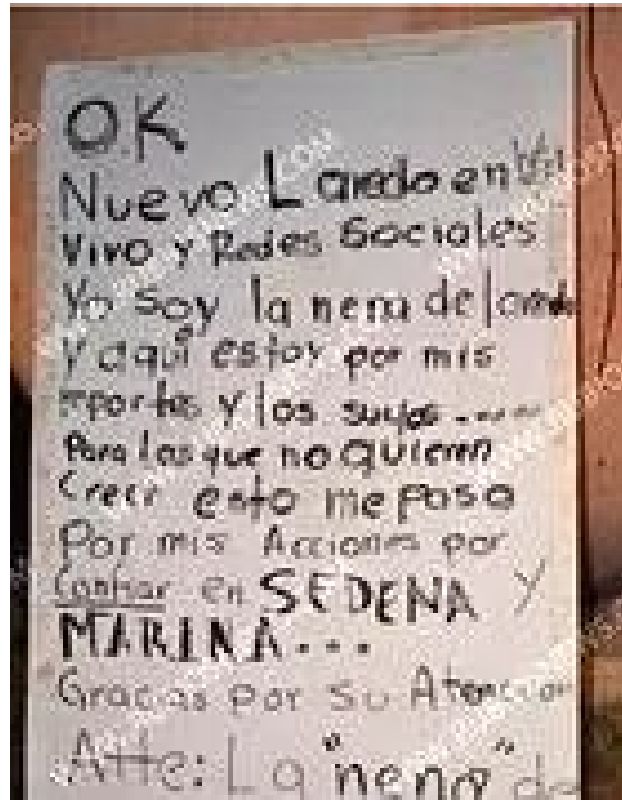 OK
Nuevo Laredo en
Vivo y Redes Sociales
Yo soy la nena de laredo
Y aqui estoy por mis
reportes y los suyos ......
Para los que no quieren
Creer esto me paso
Por mis Acciones por
Confiar en SEDENA Y
MARINA...
Gracias por su Atencion
Atte: La "nena" de